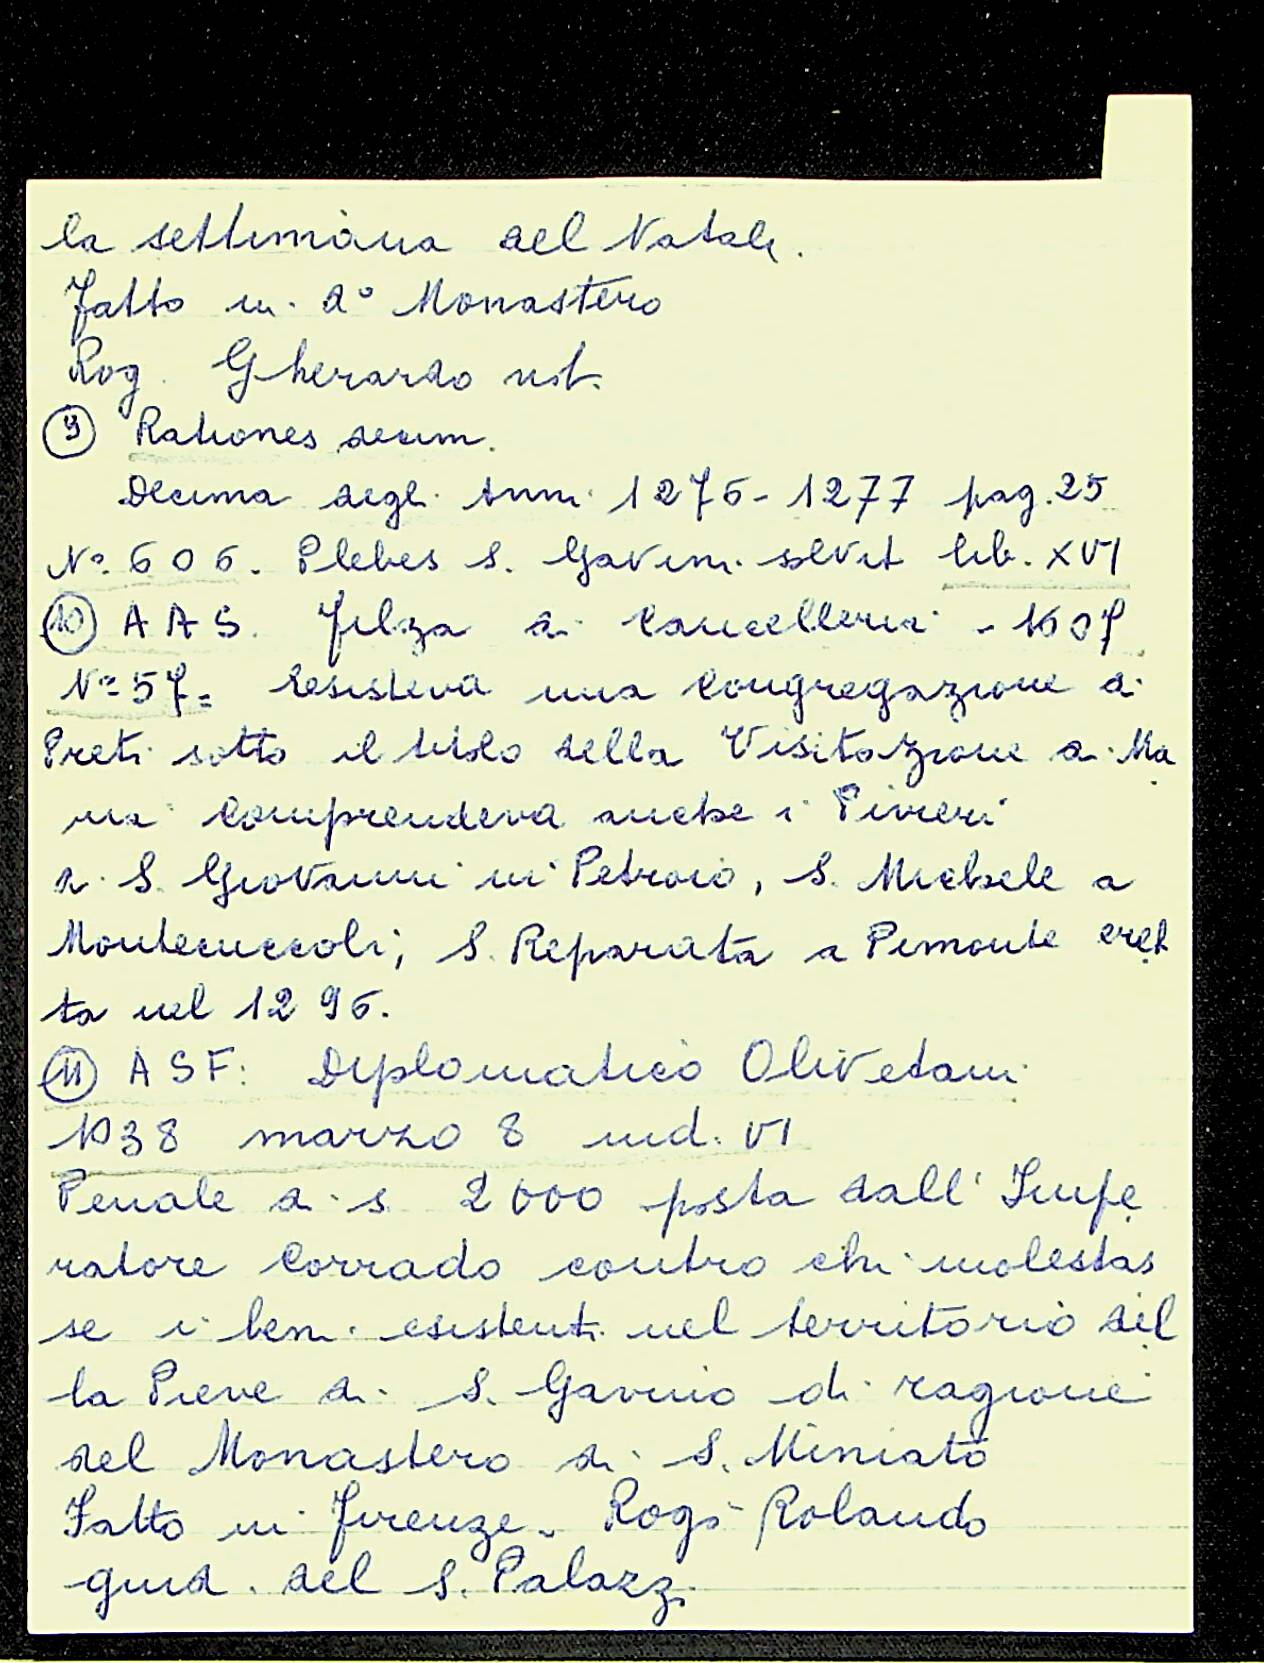 la settimana del Natale.
Fatto in d° Monastero
Rog. Gherardo not.
9 Rationes decim.
Decima degli Anni 1276-1277 pag. 25
N° 606. Plebes S. Gavini solvit lib. XVI
10 A A S. Filza di Cancelleria - 1607
N° 57= Resisteva una Congregazione di
Preti sotto il titolo della Visitazione di Ma
ria comprendeva anche i Pivieri
di S. Giovanni in Petroio, S. Michele a
Montecuccoli; S. Reparata a Pimonte eret
ta nel 1296.
11 A S F: Diplomatico Olivetani
1038 marzo 8 ind. VI
Penale di s. 2000 posta dall'Impe
ratore Corrado contro chi molestas
se i beni esistenti nel territorio del
la Pieve di S. Gavino di ragione
del Monastero di S. Miniato
Fatto in Firenze. Rogò Rolando
giud. del S. Palazz.